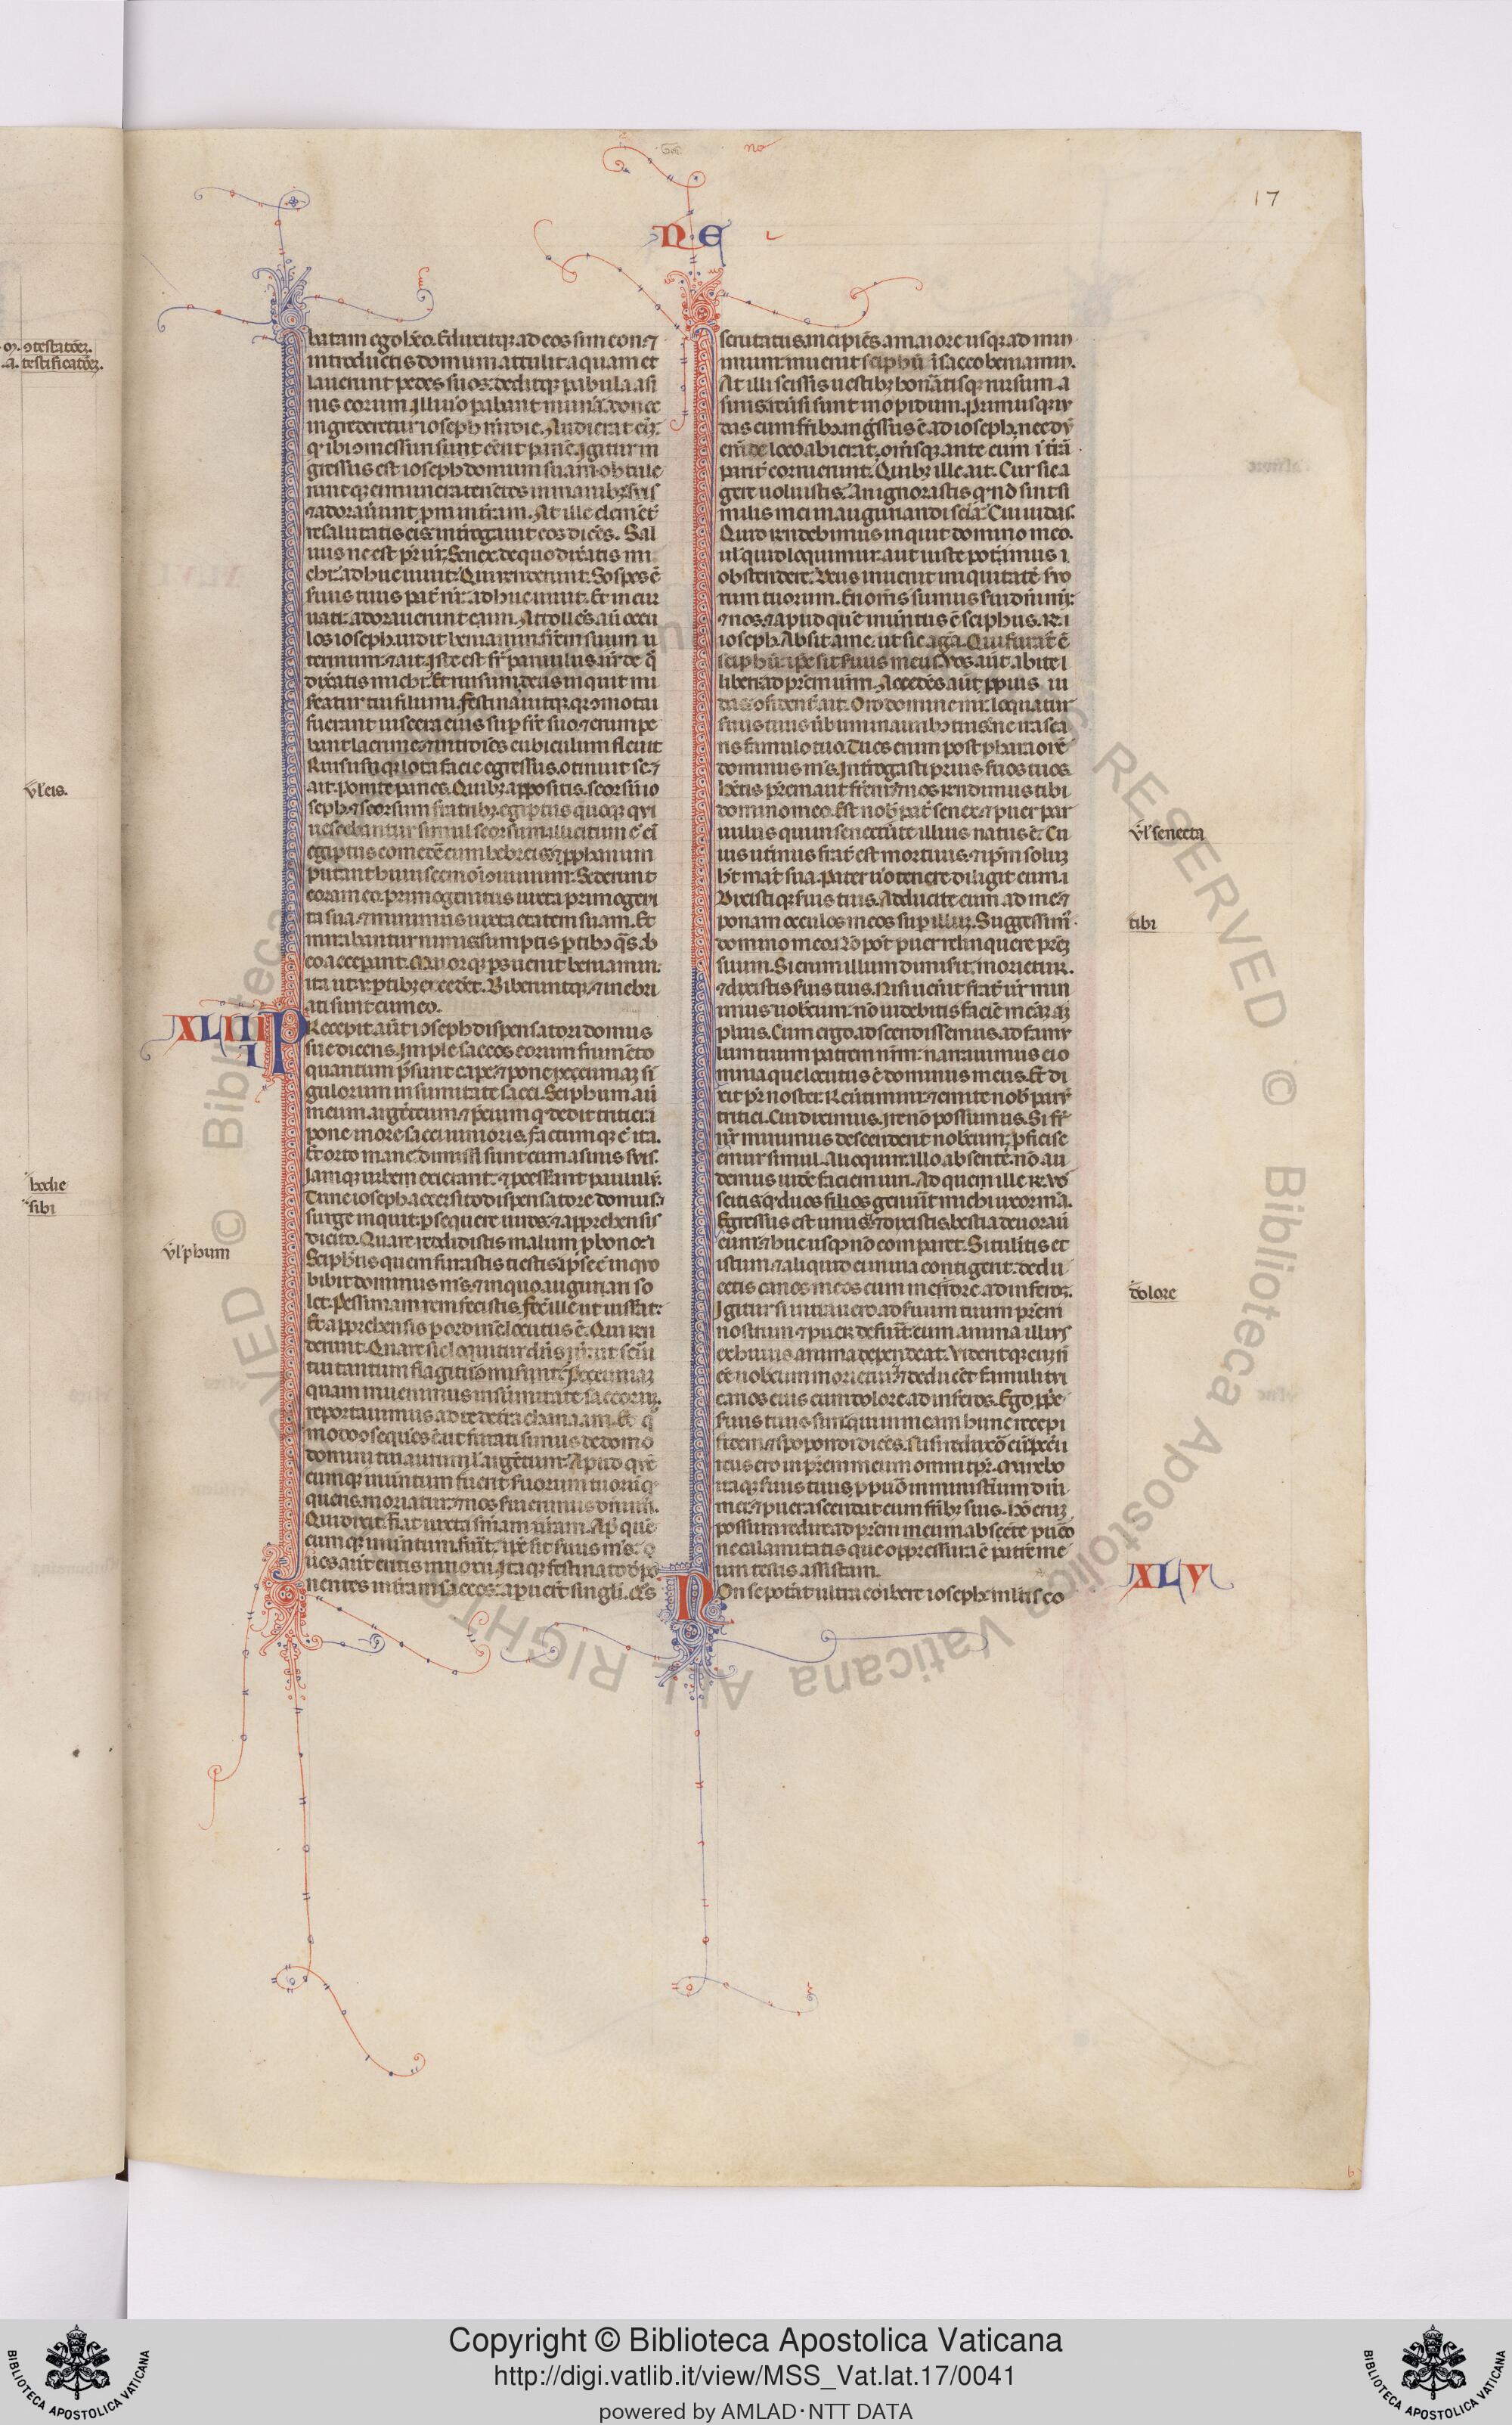 17
NE
batam ego habeo. Eduxitqz ad eos simeon. ⁊
introductis domum attulit aquam et
laverunt pedes suos. deditqz pabula asi
nis eorum. Illi u̾o pabant munera donec
ingrederetur ioseph meridie. Audierat enī
qꝫ ibi comesturi sunt eēnt panē. Igitur in
gressus est ioseph domum suam. obtule
runtqz ei munera tenētes in manibz suis
⁊ adorauerunt pni in terram. At ille clemēt̾
resalutatis eis int̾rogauit eos dicēs. Sal
uus ne est pr̄ ur̄ senex de quo dix̾atis mi
chi: adhuc uiuit. Qui rn̄derunt. Sospes ē
seruus tuus pat̾ nr̄. adhuc uiuit. Et incur
uati: adorauerunt eum. Attollēs aūt ocu
los ioseph. uidit beniamin frēm suum u
terinum ⁊ ait. Iste est fr̄ paruulus ur̄ de q̊
dix̾atis michi. Et rursum. deus inquit mi
sereatur tui fili mi. Festinauitqz. qꝛ mota
fuerant uiscera eius sup fr̄e suo. ⁊ erumpe
bant lacrime. ⁊ introiēs cubiculum fleuit
Rursusqz lota facie egressus. ɔtinuit se. ⁊
ait. ponite panes. Quibz appositis. seorsū io
seph. ⁊ seorsum fratribz. egiptiis quoqz qui
uescebantur simul seorsum. illicitum ē eī
egiptiis comedē cum hebreis. ⁊ pphanum
putant huiuscemoī ɔuiuium. Sederunt
coram eo. primogenitus iuxta primogeni
ta sua. ⁊ minimus iuxta etatem suam. Et
mirabantur nimis. sumptis ptibz q̄s ab
eo accepant. Maiorqz ps uenit beniamin.
ita ut .v. ptibz excedet. Biberuntqz. ⁊ inebri
ati sunt cum eo.
XLIIII
PRecepit aūt ioseph dispensatori domus
sue dicens. Imple saccos eorum frumēto
quantum pn̄t cape. ⁊ pone pecuniaꝫ sī
gulorum in sumitate sacci. Sciphum aū
meum argēteum ⁊ preium qd dedit tritici.
pone in ore sacci iunioris. factumqz ē ita.
Et orto mane dimissi sunt cum asinis suis.
Iamqz urbem exierant. ⁊ pcesserant paululū.
Tunc ioseph accersito dispensatore domus:
surge inquit. psequere uiros. ⁊ apprehensis
dicito. Quare reddidistis malum p bono.
Sciphus quem furastis ip̄se ē in quo
bibit dominus ms̄. ⁊ in quo augurari so
let. Pessimam rem fecistis. fecit ille ut iusserat:
Et apprehensis p ordinē locutus ē. Qui rn̄
derunt. Quare sic loquitur dn̄s nr̄. ut serui
tui tantum flagitii ɔmiserint. Pecuniaꝫ
quam inuenimus in sūmitate saccorum.
reportauimus ad te de terra chanaam. Et q̊
modo ɔsequēs ē ut furati simus de domo
domini tui aurum ul̾ argētum. Apud quē
cumqz inuentum fuerit seruorum tuorum qd
queris. moriatur. ⁊ nos serui erimus dn̄i nr̄i.
Qui dixit. fiat iuxta sn̄iam ur̄am. Apd quē
cumqz inuentum fuerit. ip̄e sit seruus ms̄.
uos aūt eritis innoxii. Itaqz festinato depo
nentes in terram saccos. apuerūt singuli. Qs̾
ul̾ phum
scrutatus. incipiēs a maiore usqz ad min
imum. inuenit sciphū ī sacco beniamin.
At illi scissis uestibz. honatisqz rursum a
sinis. reuersi sunt in opidum. Primusqz iu
das cum fribz ingressus ē ad ioseph. necdū
enī de loco abierat. oms̄qz ante eum ī terrā
pariter corruerunt. Quibz ille ait. Cur sic a
gere uoluistis. An ignorastis qd nō sit si
milis mei in augurandi scīa. Cui iudas.
Quid rn̄debimus inquit domino meo.
uel̾ quid loquimur. aut iuste pot̾imus
obstendere. Deus inuenit iniquitatē seruo
rum tuorum. En oms̄ sumus serui dn̄i mī:
⁊ nos ⁊ apud quē inuentus ē sciphus. R̄.
ioseph. Absit a me. ut sic agā. Qui furat̾ ē
sciphū. ip̄e sit seruus meus. Uos aūt abite
liberi ad prem urm̄. Accedēs aūt ppius iu
das. ɔfidenter ait. Oro domine mi. loquatur
seruus tuus ūbum in auribz tuis. ne irasca
ris famulo tuo. Tu es enim post pharaonē
dominus ms̄. Int̾rogasti prius seruos tuos.
hētis prem aut frem. ⁊ nos rn̄dimus tibi
domino meo. Est nob pat̾ senex. ⁊ puer par
uulus qui in senectute illius natus ē. Cu
ius uterinus frat̾ est mortuus. ⁊ ip̄m solum
ht̄ mat̾ sua. Pater u̾o tenere diligit eum.
Dixistiqz seruis tuis. Adducite eum ad me. ⁊
ponam occulos meos sup illum. Suggessim̄
domino meo. Nō pot̾ puer relinquere prem
suum. Si enim illum dimisit. morietur.
⁊ dixistis seruis tuis. Nisi uenit frat̾ ur̄ min
imus uobcum. nō uidebitis faciē meaꝫ ā
plius. Cum ergo adscendissemus ad famu
lum tuum patrem nrm̄. narrauimus ei o
mnia que locutus ē dominus meus. Et di
xit pr̄ noster. Reūtimini ⁊ emite nob parū
tritici. Cui diximus. ire nō possumus. Si fr̄
nr̄ minimus descendent nobcum. pficisc
emur simul. Alioquin illo absente. nō au
demus uidē faciem uiri. Ad quem ille R̄. uos
scitis qd duos filios genuit michi uxor mā.
Egressus est unus. ⁊ dixistis. bestia deuorauit
eum. ⁊ hucusqz nō comparet. Si tuleritis et
istum. ⁊ aliquid ei in uia contigerit. dedu
cetis canos meos cum merore ad inferos.
Igitur si intrauero ad seruum tuum prem
nostrum ⁊ puer defuerit. cum anima illius
ex huius anima dependeat. uideritqz eum nō
eē nobcum morietur. ⁊ deducent famuli tui
canos eius cum dolore ad inferos. Ego pprie
seruus tuus sim. qui in meam hunc recepi
fidem. ⁊ spopondi dicēs. Nisi reduxero eum. peccati
reus ero in prem meum omni tpr̄. Manebo
itaqz seruus tuus. p puero in ministerium dn̄i
mei. ⁊ puer ascendat cum fribz suis. Nō enim
possum redire ad prem meum absente puero
ne calamitatis que oppressura ē patrē me
um testis assistam.
NOn se poterat ultra coibere ioseph. multis co
ul̾ senecta
tibi
dolore
XLV
ɔtestatōeꝫ.
.a. testificatōeꝫ.
ul̾ eis.
hodie
sibi
Biblioteca Apostolica Vaticana ALL RIGHTS RESERVED ©
Copyright © Biblioteca Apostolica Vaticana
http://digi.vatlib.it/view/MSS_Vat.lat.17/0041
powered by AMLAD·NTT DATA
BIBLIOTECA APOSTOLICA VATICANA
BIBLIOTECA APOSTOLICA VATICANA